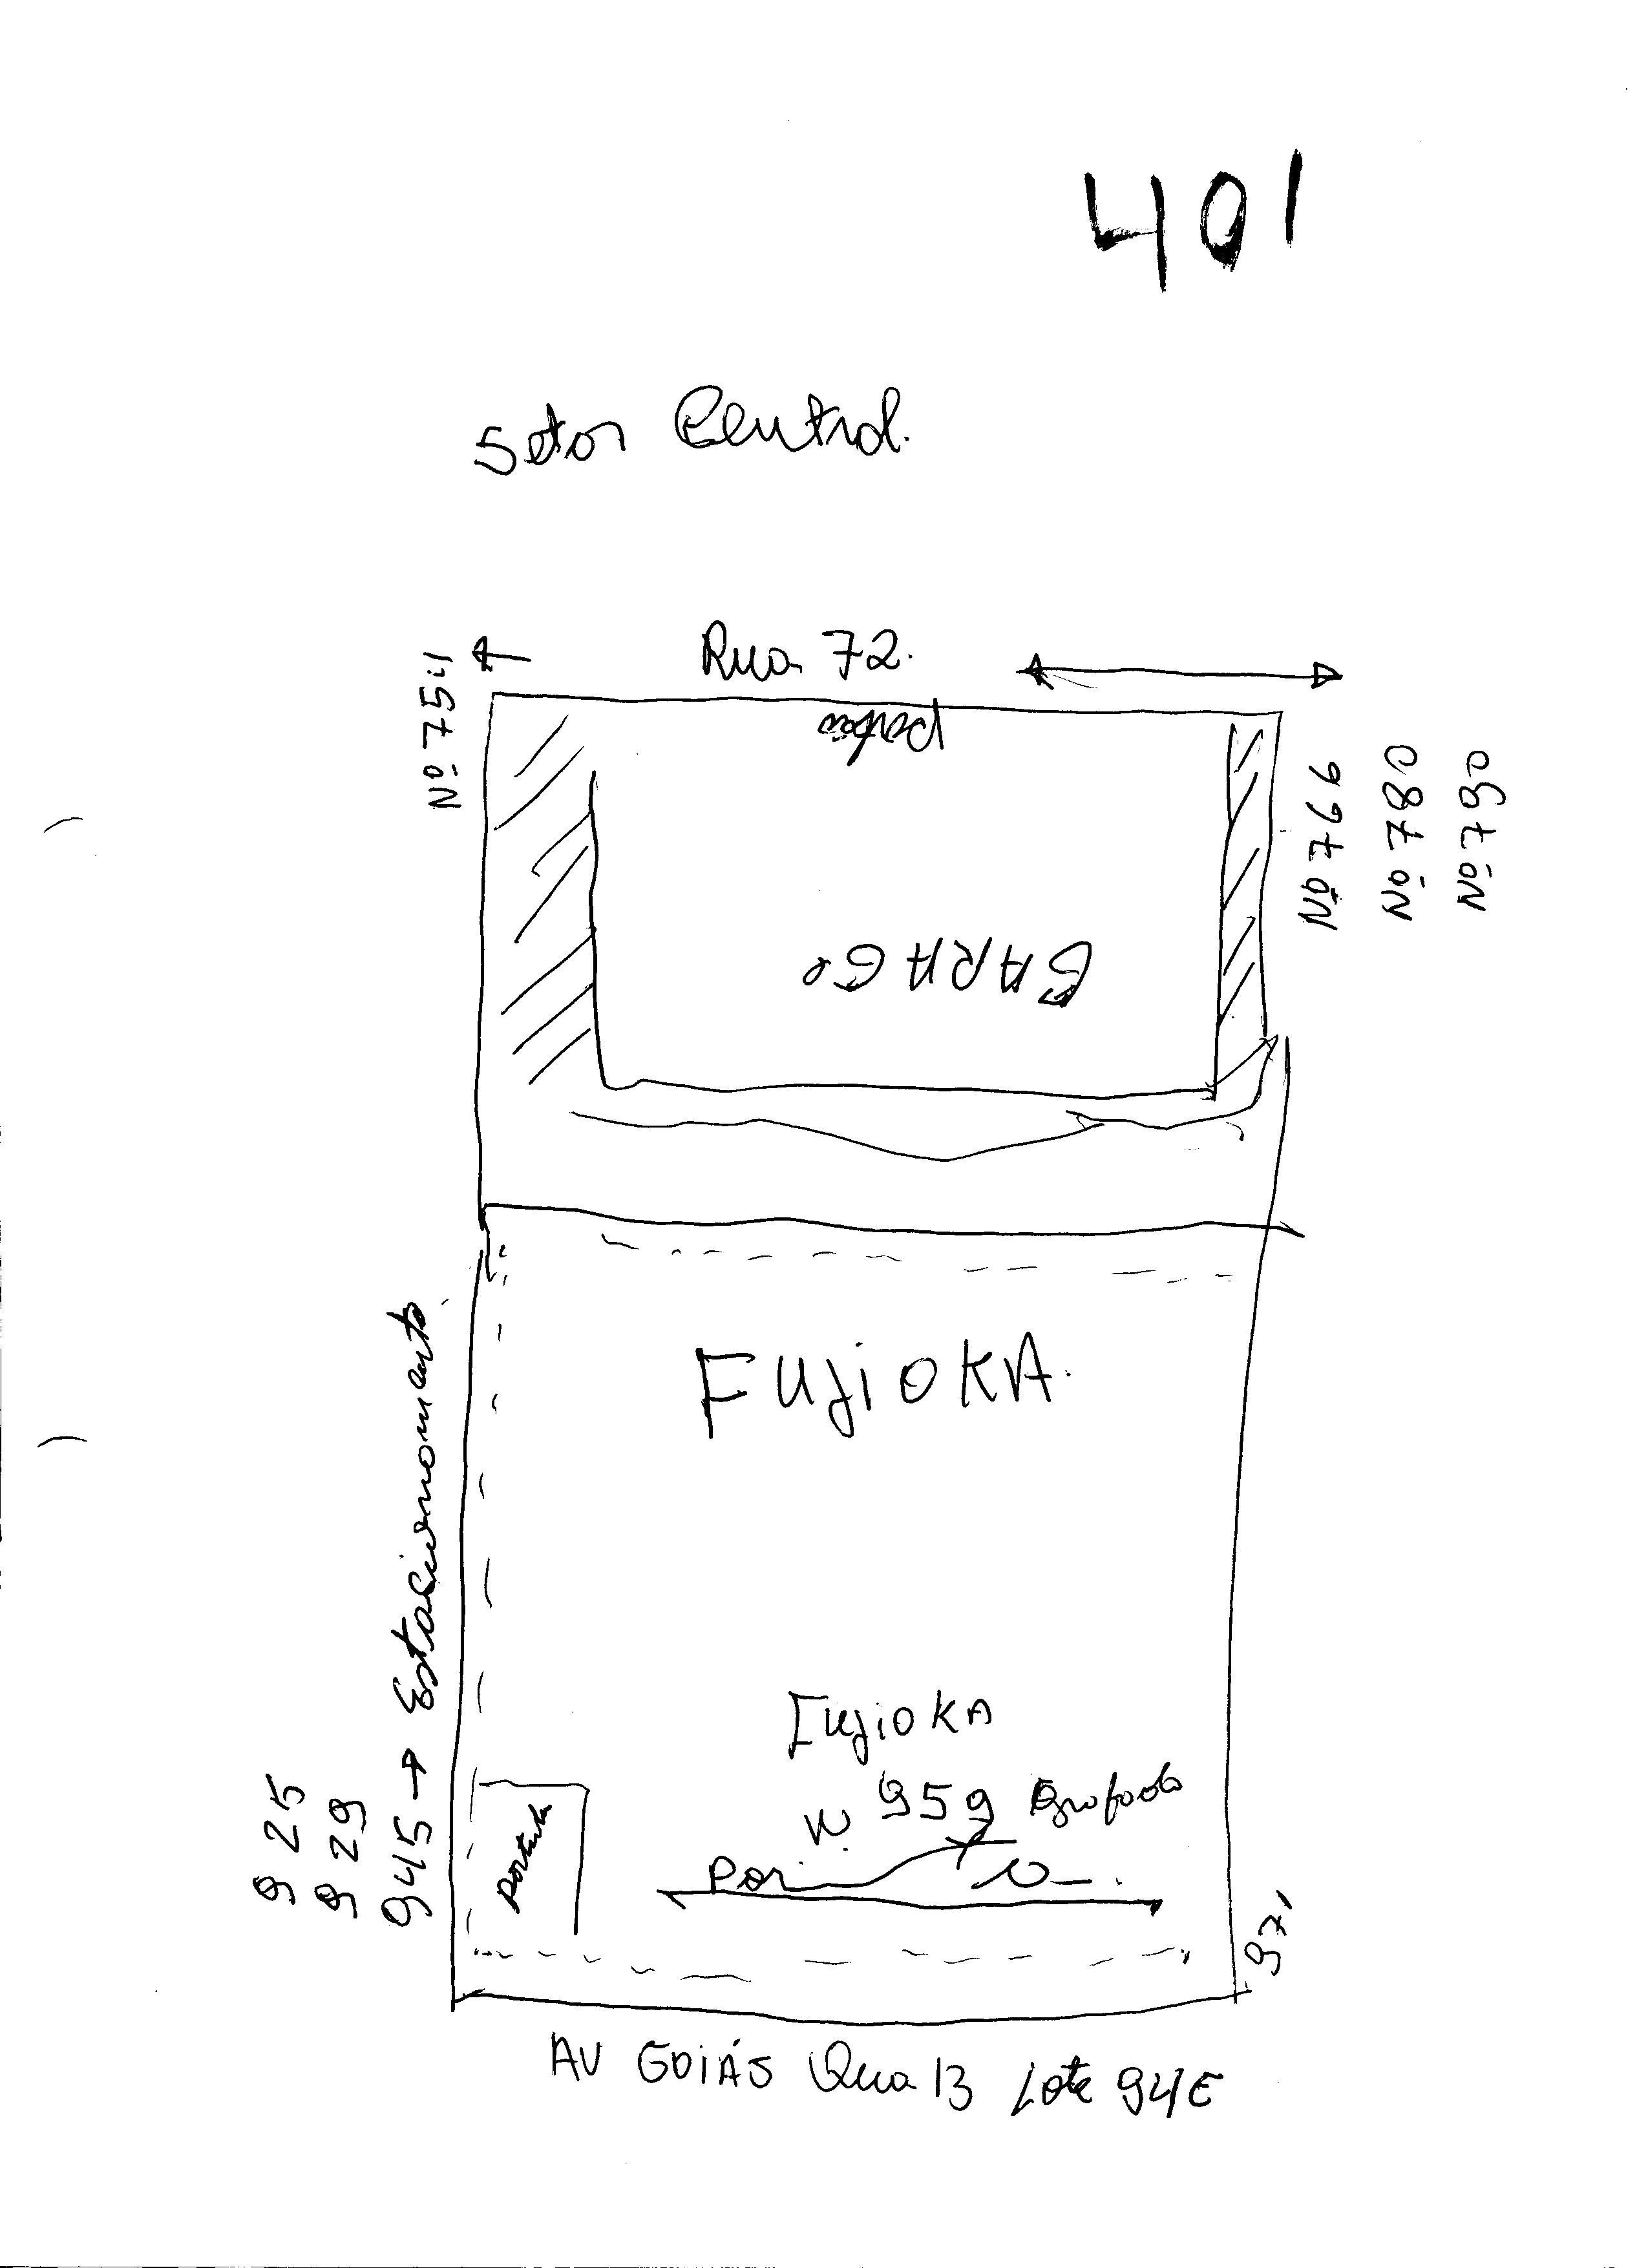 401
Setor Central.
Rua 72.
Nº 751
Nº 766
Nº 780
Nº 790
GARAGe
FUJiOKA.
945 → Estacionamento
929
925
FUJiOKA
N 959
Portão
971
AV GOIÁS Qua 13 Lote 94E